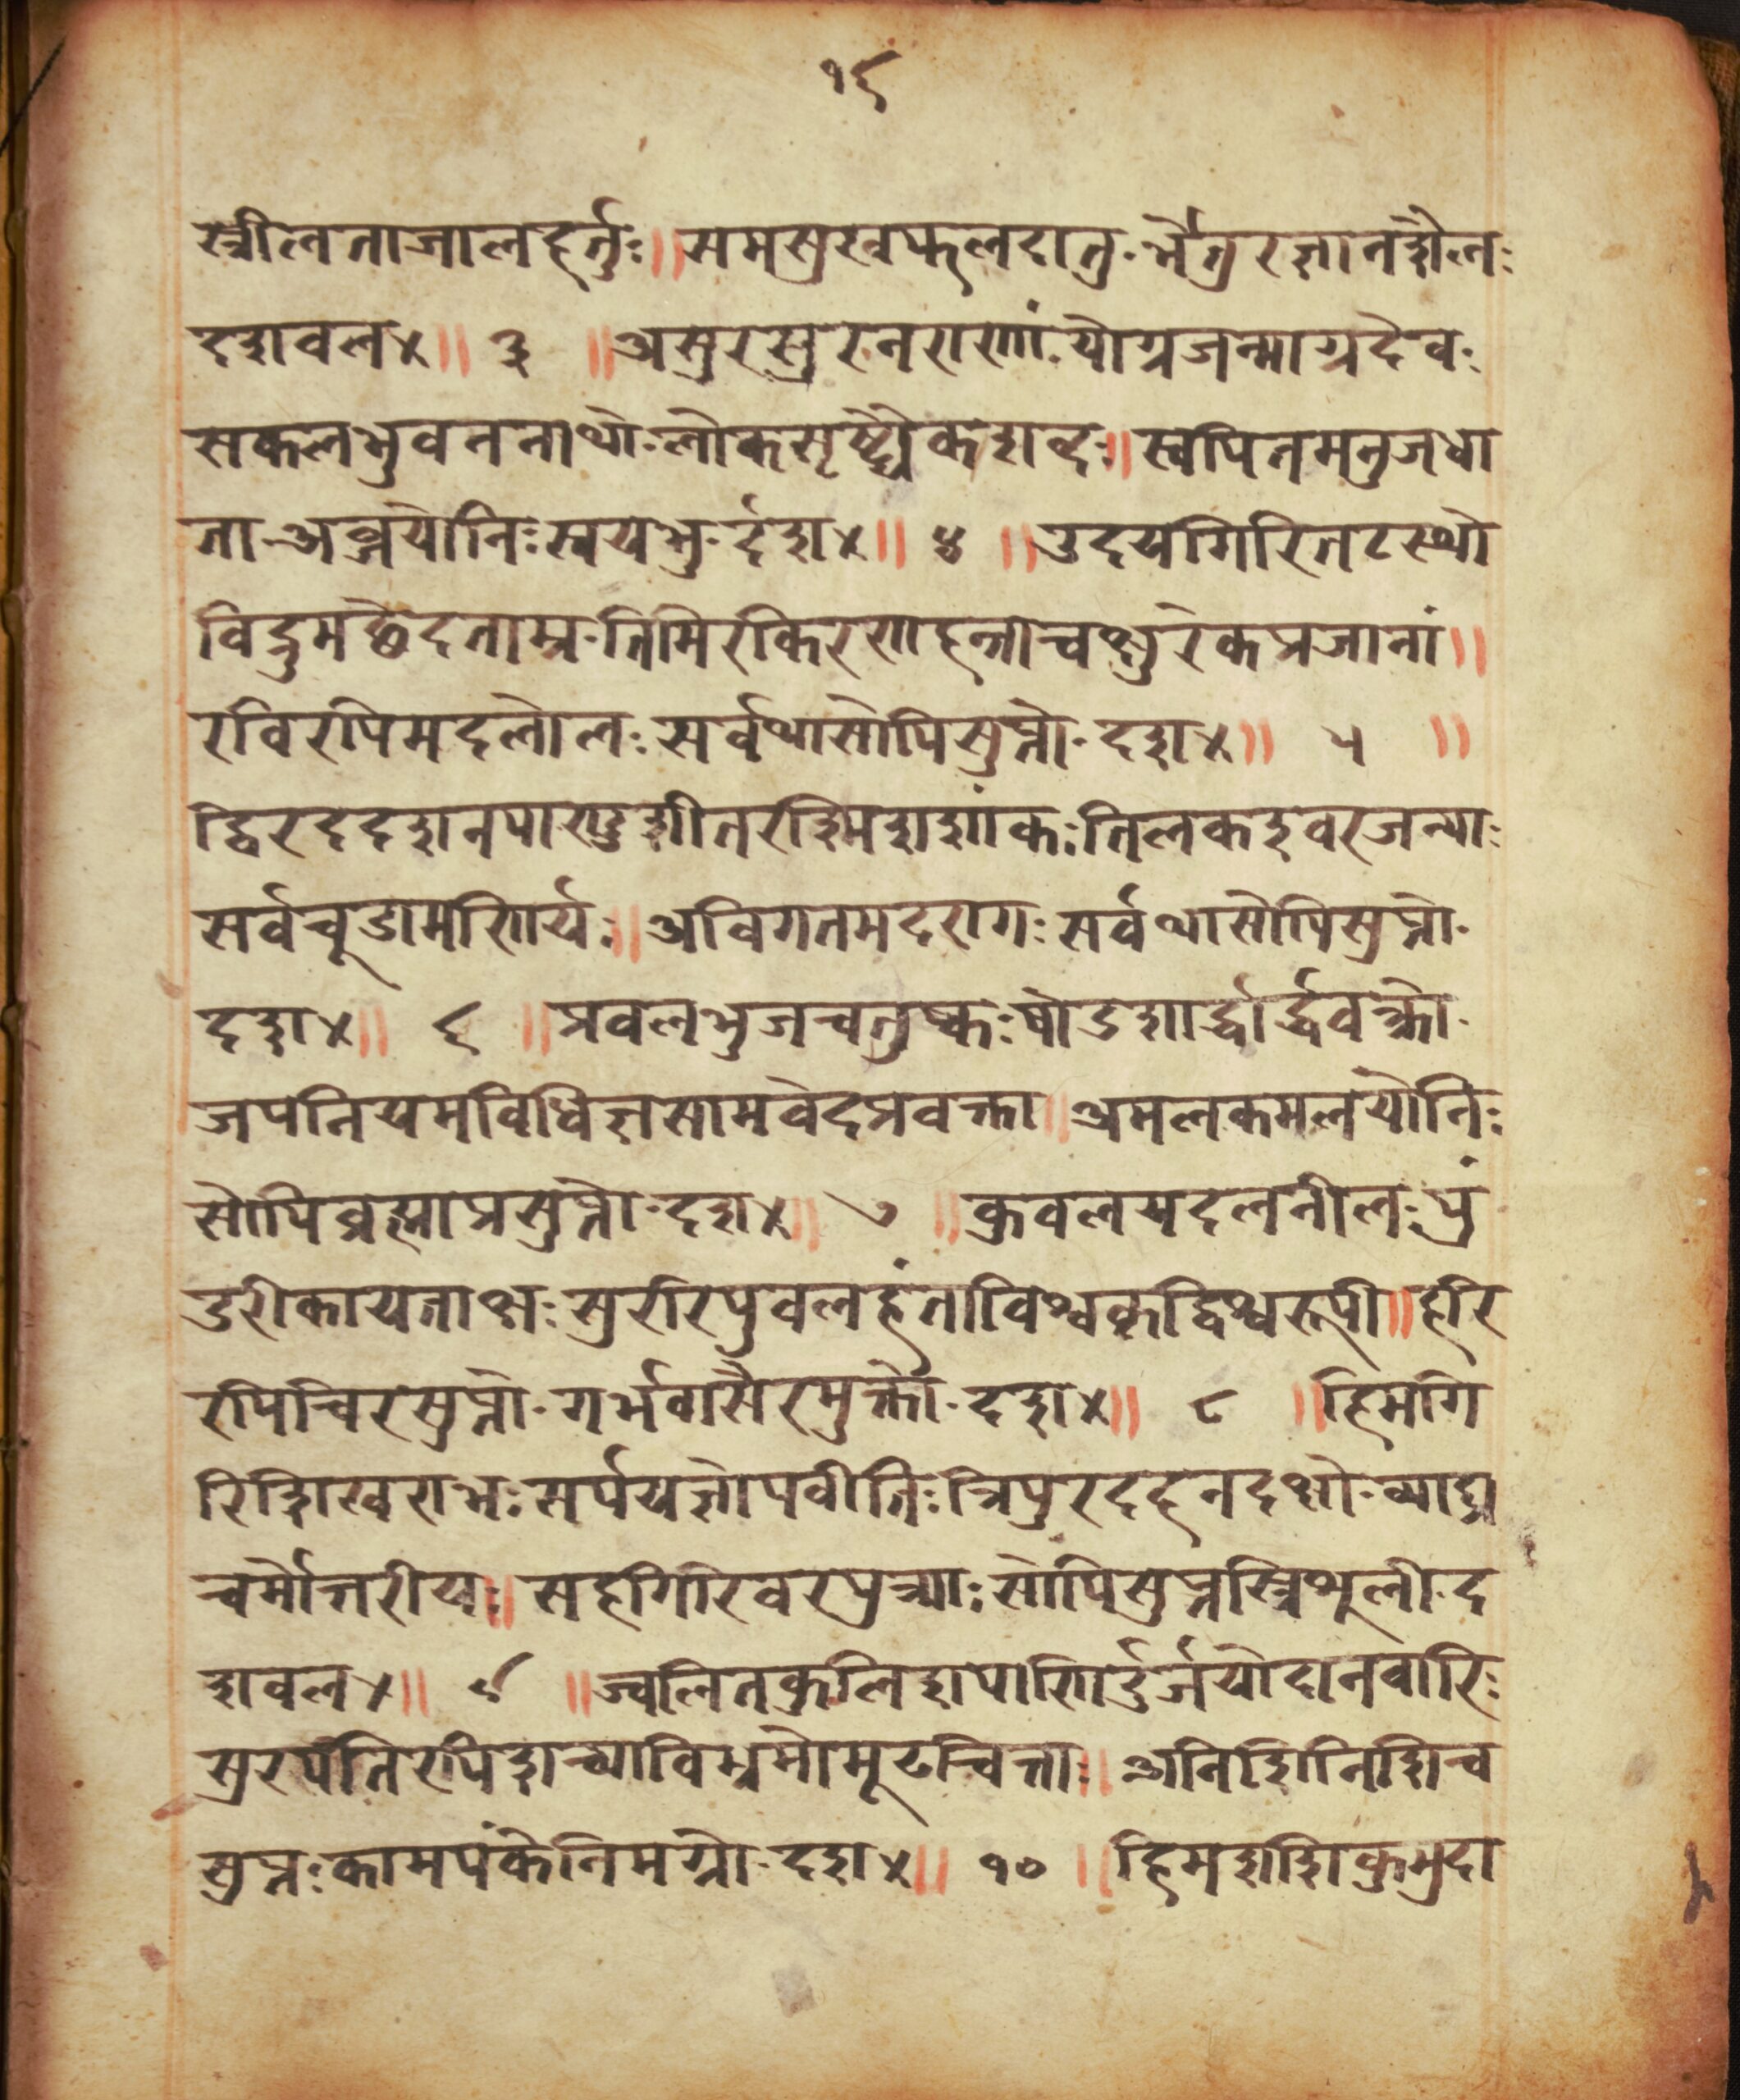 १६
स्त्रीलताजालहर्तुः॥समसुखफलदातु-र्भेतुरज्ञानशैलं-
दशवल४॥ ३ ॥असुरसुरनराणां-योग्रजन्माग्रदेवः
सकलभुवननाथो-लोकसृष्ट्यैकशब्दः॥स्वपितमनुजधा
ता-अब्जयोनिःस्वयंभु-र्दश४॥ ४ ॥उदयगिरितटस्थो
विद्रुमछेदताम्र-तिमिरकिरणहन्ताचक्षुरेकप्रजानां॥
रविरपिमदलोलःसर्वथासोपिसुप्तो-दश४॥ ५ ॥
द्विरददशनपाण्डुशीतरश्मिशशांकःतिलकइवरजन्याः
सर्वचूडामणिर्यः॥अविगतमदरागःसर्वथासोपिसुप्तो-
दश४॥ ६ ॥प्रवलभुजचतुष्कःषोडशार्द्धार्द्धवक्त्रो-
जपनियमविधिज्ञसामवेदप्रवक्ता॥अमलकमलयोनिः
सोपिब्रह्माप्रसुप्तो-दश४॥ ७ ॥कुवलयदलनीलःपुं
डरीकायताक्षःसुररिपुवलहंताविश्वकृद्विश्वरूपी॥हरि
रपिचिरसुप्तो-गर्भवासैरमुक्तो-दश४॥ ८ ॥हिमगि
रिशिखराभःसर्पयज्ञोपवीतिःत्रिपुरदहनदक्षो-व्याघ्र
चर्मोत्तरीयः॥सहगिरिवरपुत्र्याःसोपिसुप्तस्त्रिशुली-द
शवल४॥ ९ ॥ज्वलितकुलिशपाणिर्दुर्जयोदानवारिः
सुरपतिरपिशच्याविभ्रमोमूढचित्तः॥अनिशिनिशिच
सुप्तःकामपंकेनिमग्नो-दश४॥ १० ॥हिमशशिकुमुदा